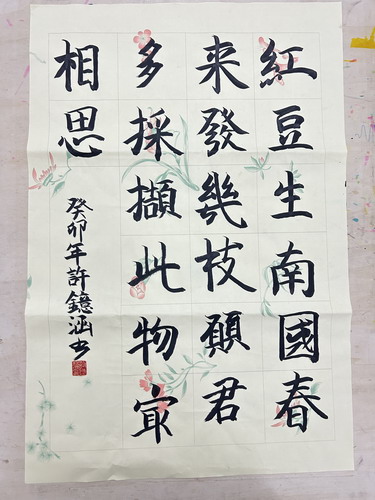 紅豆生南國春
来發幾枝願君
多採擷此物㝡
相思
癸卯年許鐿涵书